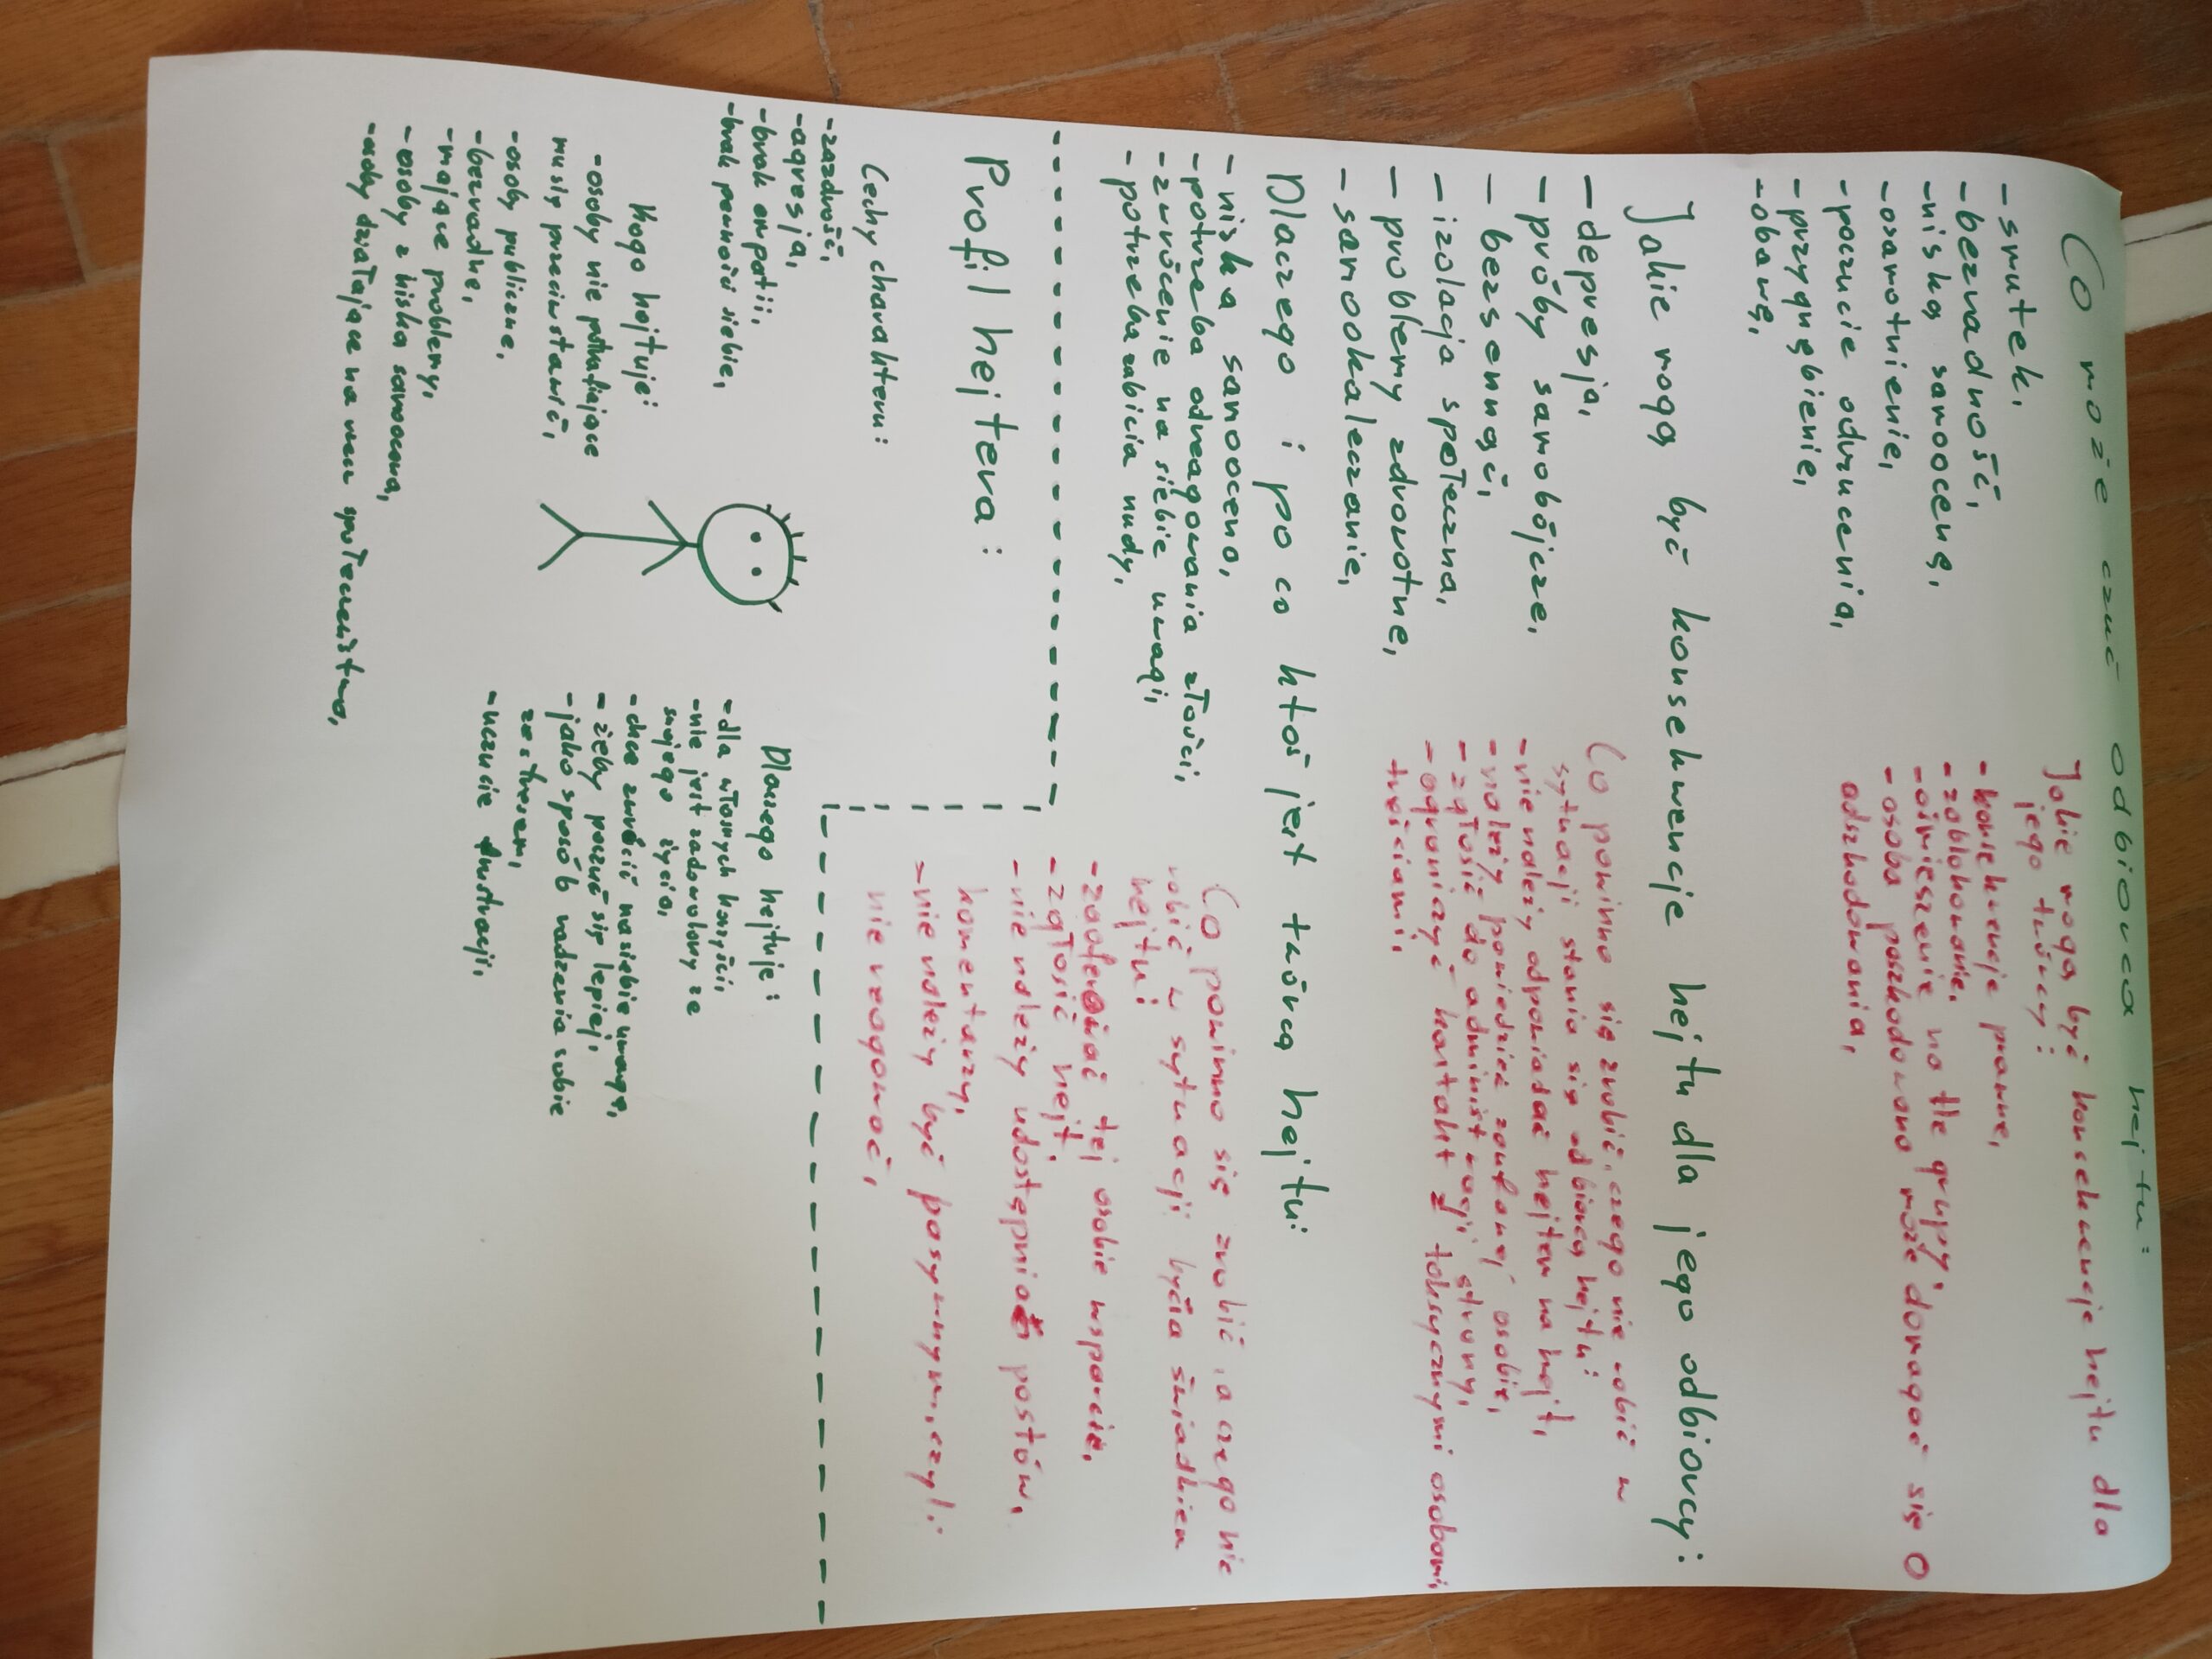 Co może czuć odbiorca hejtu:
- smutek,
- bezradność,
- niską samoocenę,
- osamotnienie,
- poczucie odrzucenia,
- przygnębienie,
- obawę,
Jakie mogą być konsekwencje hejtu dla
jego twórcy:
- konsekwencje prawne,
- zablokowanie,
- ośmieszenie na tle grupy,
- osoba poszkodowana może domagać się o
odszkodowania,
Jakie mogą być konsekwencje hejtu dla jego odbiorcy:
- depresja,
- próby samobójcze,
- bezsenność,
- izolacja społeczna,
- problemy zdrowotne,
- samookaleczanie,
Co powinno się zrobić, czego nie robić w
sytuacji stania się odbiorcą hejtu:
- nie należy odpowiadać hejtem na hejt,
- należy powiedzieć zaufanej osobie,
- zgłosić do administracji strony,
- ograniczyć kontakt z toksycznymi osobami,
treściami,
Dlaczego i po co ktoś jest twórcą hejtu:
- niska samoocena,
- potrzeba odreagowania złości,
- zwrócenie na siebie uwagi,
- potrzeba zabicia nudy,
Co powinno się zrobić, a czego nie
robić w sytuacji bycia świadkiem
hejtu:
- zaoferować tej osobie wsparcie,
- zgłosić hejt,
- nie należy udostępniać postów,
komentarzy,
- nie należy być pasywnym, czyli:
nie reagować,
Profil hejtera:
Cechy charakteru:
- zazdrość,
- agresja,
- brak empatii,
- brak pewności siebie,
Kogo hejtuje:
- osoby nie potrafiające
musię przeciwstawić,
- osoby publiczne,
- bezradne,
- mające problemy,
- osoby z niską samooceną,
- osoby działające na rzecz społeczeństwa,
Dlaczego hejtuje:
- dla własnych korzyści,
- nie jest zadowolony ze
swojego życia,
- chce zwrócić na siebie uwagę,
- żeby poczuć się lepiej,
- jako sposób radzenia sobie
ze stresem,
- uczucie frustracji,